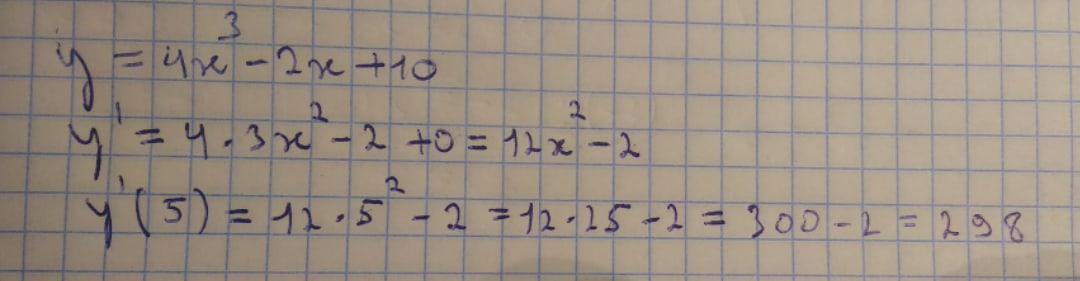 y = 4x³ - 2x + 10
y' = 4 · 3x² - 2 + 0 = 12x² - 2
y'(5) = 12 · 5² - 2 = 12 · 25 - 2 = 300 - 2 = 298